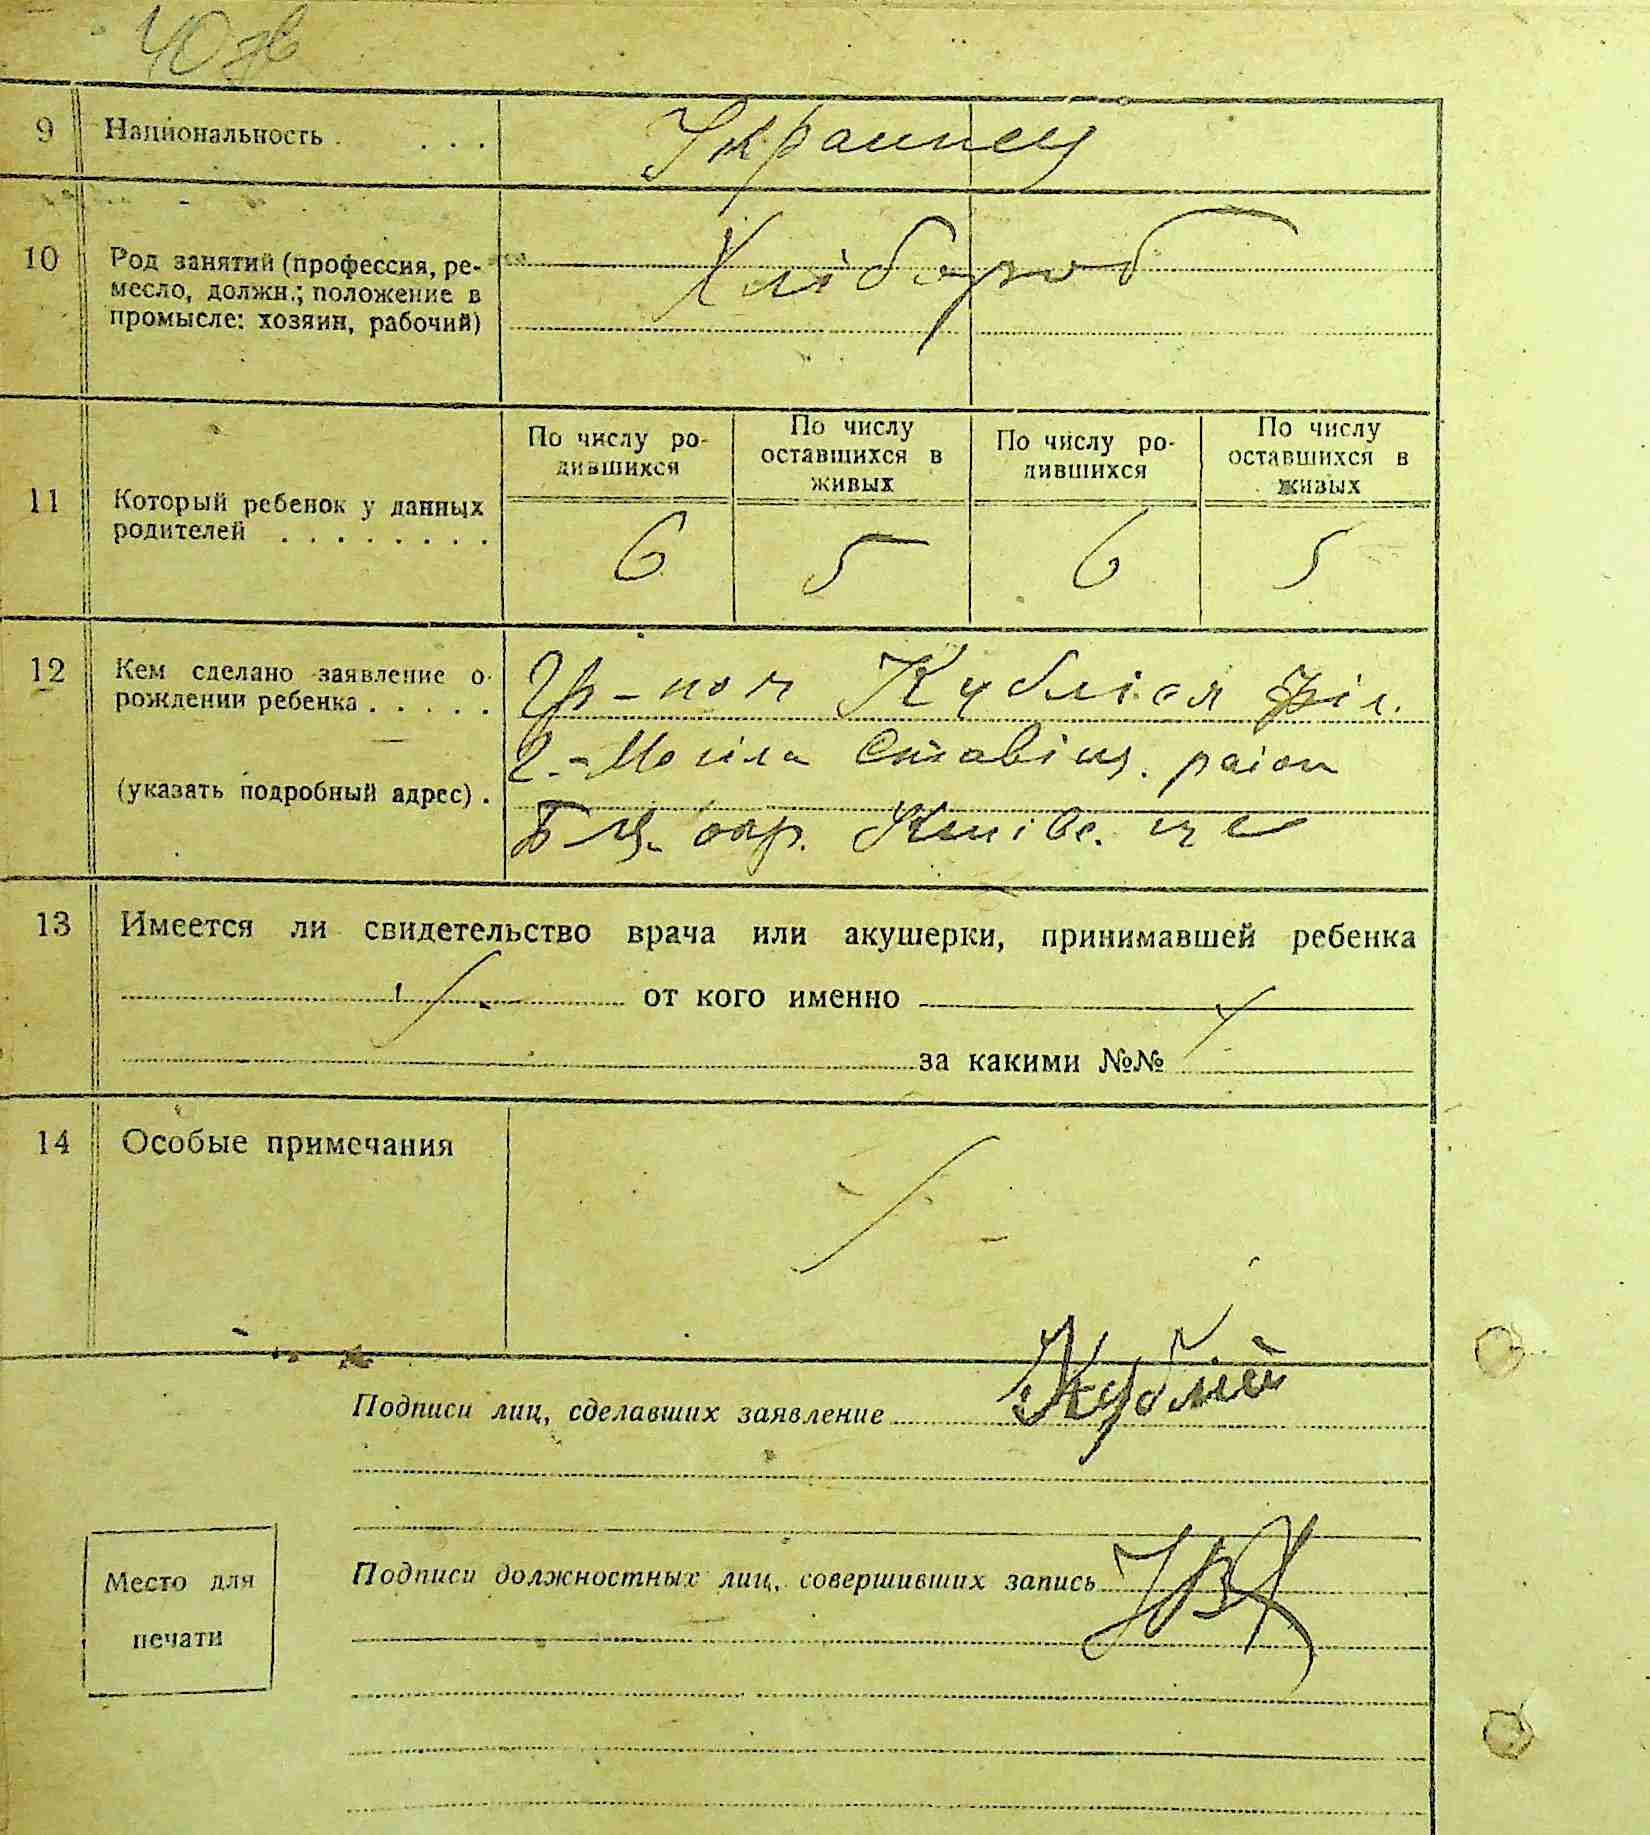 40
9 Национальность . . . . Украинец
10 Род занятий (профессия, ре-
месло, должн.; положение в
промысле: хозяин, рабочий)
Хлібороб
По числу ро-
дившихся
По числу
оставшихся в
живых
По числу ро-
дившихся
По числу
оставшихся в
живых
11 Который ребенок у данных
родителей . . . . . . . .
6 5 6 5
12 Кем сделано заявление о
рождении ребенка . . . . .
(указать подробный адрес) .
Гр-ном
район
Б Ц. окр.
13 Имеется ли свидетельство врача или акушерки, принимавшей ребенка
от кого именно
за какими №№
14 Особые примечания
Подписи лиц, сделавших заявление
Подписи должностных лиц, совершивших запись
Место для
печати